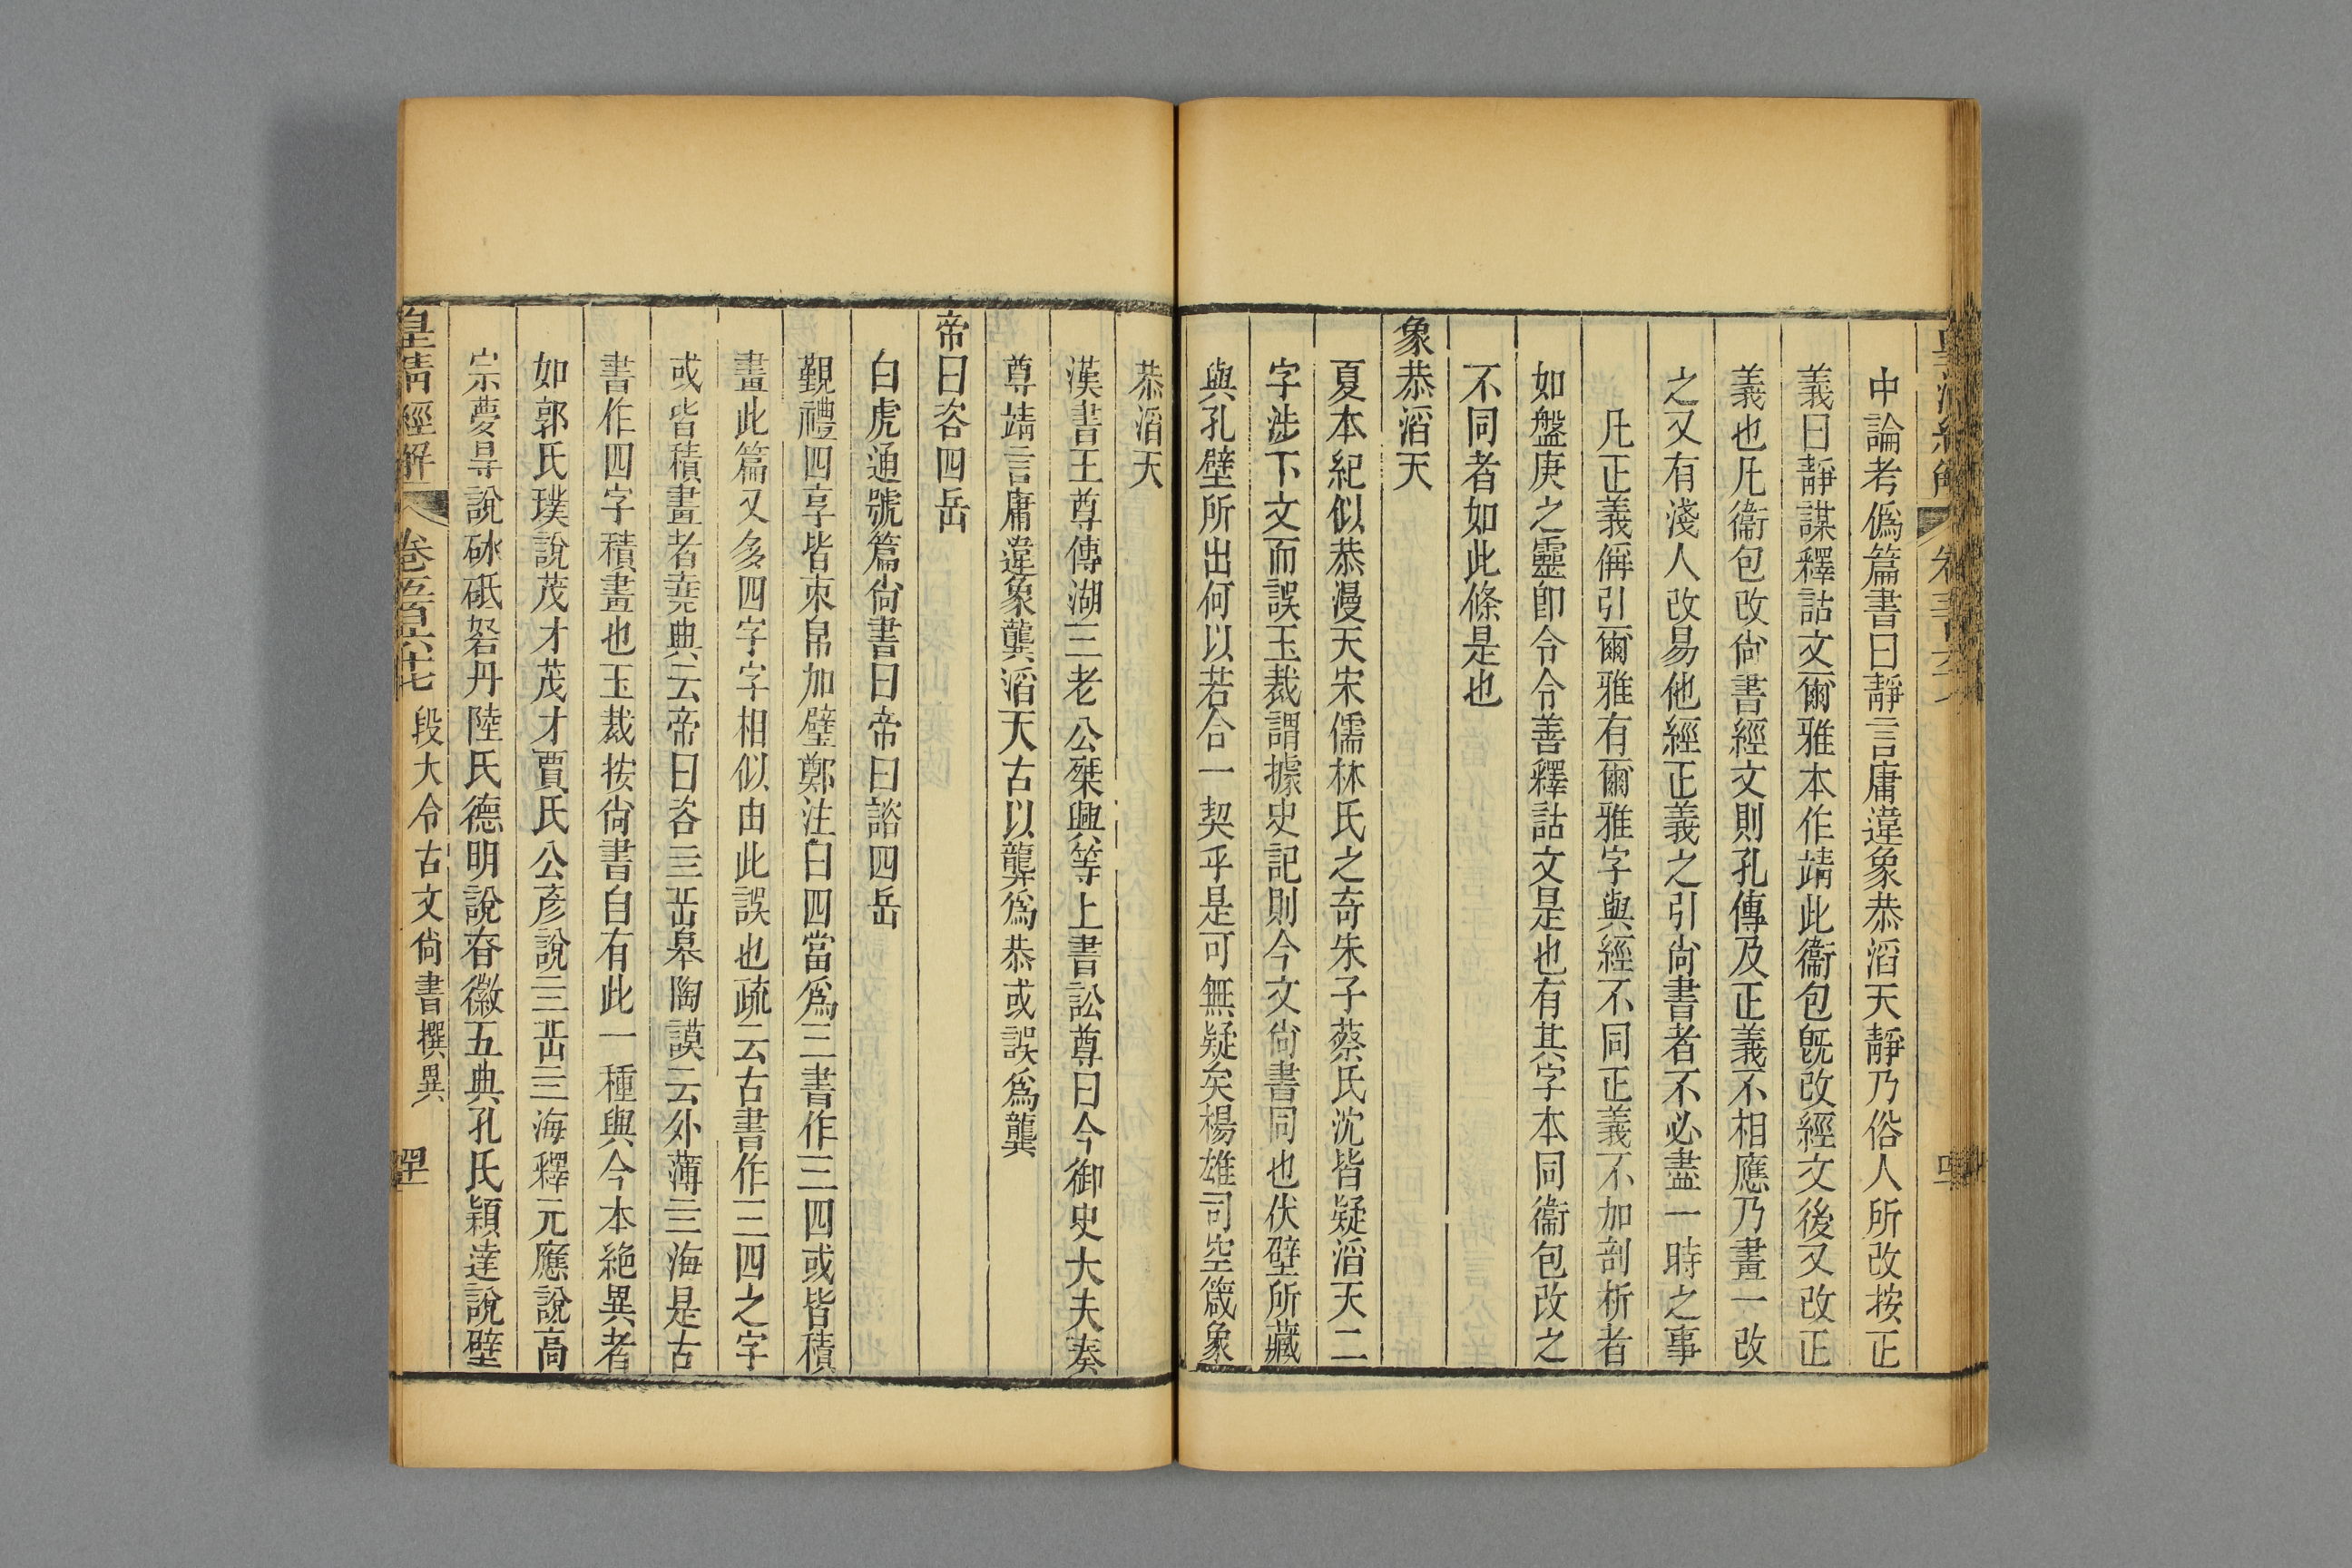 中論考僞篇書曰靜言庸違象恭滔天靜乃俗人所改按正
義曰靜謀釋詁文爾雅本作靖此衞包旣改經文後又改正
義也凡衞包改尙書經文則孔傳及正義不相應乃畫一改
之又有淺人改易他經正義之引尙書者不必盡一時之事
凡正義偁引爾雅有爾雅字與經不同正義不加剖析者
如盤庚之靈卽令令善釋詁文是也有其字本同衞包改之
不同者如此條是也
象恭滔天
夏本紀似恭漫天宋儒林氏之奇朱子蔡氏沈皆疑滔天二
字涉下文而誤玉裁謂據史記則今文尙書同也伏壁所藏
與孔壁所出何以若合一契乎是可無疑矣楊雄司空箴象
恭滔天
漢書王尊傳湖三老公椉興等上書訟尊曰今御史大夫奏
尊靖言庸違象龔滔天古以龔爲恭或誤爲龔
帝曰咨四岳
白虎通號篇尙書曰帝曰諮四岳
覲禮四享皆束帛加璧鄭注曰四當爲三書作三四或皆積
畫此篇又多四字字相似由此誤也疏云古書作三四之字
或皆積畫者堯典云帝曰咨亖岳皋陶謨云外薄亖海是古
書作四字積畫也玉裁按尙書自有此一種與今本絶異者
如郭氏璞說茂才茂才賈氏公彥說亖岳亖海釋元應說高
宗夢㝵說砅砥砮丹陸氏德明說㫪徽五典孔氏穎達說壁
皇淸經解
卷五百六十七
段大令古文尙書撰異